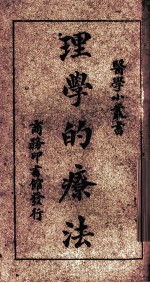 醫學小叢書
理學的療法
商務印書館發行